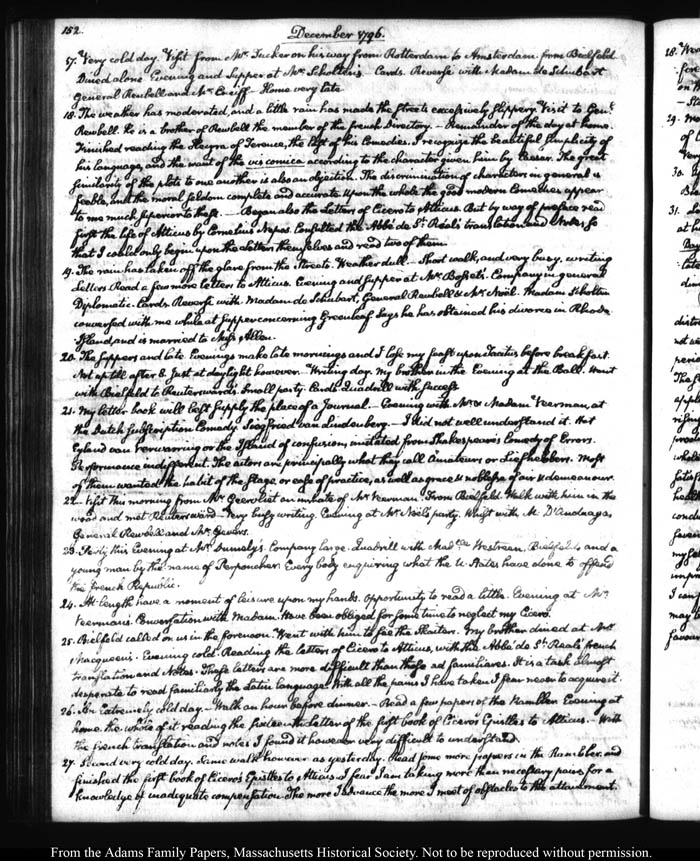 152.
December 1796.
17. Very cold day. Visit from Mr. Tucker on his way from Rotterdam to Amsterdam from Bielfeld
Dined alone Evening and Supper at Mr. Scholten's. Cards. Reversi with Madam de Schubart
General Reubell and Mr. Home very late
18. The weather has moderated, and a little rain has made the Streets excessively slippery. Visit to Genl.
Rewbell. He is a brother of Rewbell the member of the french Directory. — Remainder of the day at home.
Finished reading the Hecyra of Terence, the last of his Comedies. I recognize the beautiful simplicity of
his language, and the want of the vis comica according to the character given him by Caesar. The great
similarity of the plots to one another is also an objection. The discrimination of characters in general is
feeble, and the moral seldom complete and accurate. Upon the whole the good modern Comedies appear
to me much superior to these. — Began also the Letters of Cicero to Atticus. But by way of preface read
first the life of Atticus by Cornelius Nepos. Consulted the Abbé de St. Réal's translation and Notes, so
that I could only begin upon the Letters themselves and read two of them.
19. The rain has taken off the glare from the Streets. Weather dull. — Short walk, and very busy, writing
Letters Read a few more letters to Atticus. Evening and supper at Mr. Bosset's. Company in general
Diplomatic. Cards. Reversi with Madam de Schubart, General Rewbell & Mr. Noël. Madam Scholten
conversed with me while at supper concerning Greenleaf Says he has obtained his divorce in Rhode
Island, and is married to Miss Allen.
20. The suppers and late Evenings make late mornings and I lose my feast upon Tacitus before breakfast.
Not up till after 8. Just at daylight however. Writing day. My brother in the Evening at the Ball. Went
with Bielfeld to Reuterswärd's. Small party. Cards. Quadrill with success
21. My letter book will best supply the place of a Journal. — Evening with Mr. & Madam Veerman, at
the Dutch Subscription Comedy. Siegfried van Lindenberg. — I did not well understand it. Het
Eyland van Verwarring or the Island of confusion, imitated from Shakespear's Comedy of Errors.
Performance indifferent. The actors are principally what they call Amateurs or Liefhebbers. Most
of them wanted the habit of the Stage, or ease of practice, as well as grace & noblesse of air & demeanour.
22. Visit this morning from Mr. an inmate of Mr. Veerman. From Bielfeld. Walk with him in the
wood and met Reutersward. Very busy writing. Evening at Mr. Noël's party. Whist with M. D'Anduaga,
General Rewbell and Mr. Gevers.
23. Party this Evening at Mr. Company large. Quadrill with Madlle. Westreen, Bielfeld, and a
young man by the name of Perponcher. Every body enquiring what the U. States have done to offend
the french Republic.
24. At length have a moment of leisure upon my hands. Opportunity to read a little. Evening at Mr.
Veerman's. Conversation with Madam. Have been obliged for some time to neglect my Cicero.
25. Bielfeld called on us in the forenoon. Went with him to see the Skaiters. My brother dined at Mrs.
Macqueen's. Evening cold. Reading the letters of Cicero to Atticus, with the Abbé de St. Réal's french
translation and Notes. These letters are more difficult than those ad familiares. It is a task almost
desperate to read familiarly the Latin language. With all the pains I have taken I fear never to acquire it.
26. An Extremely cold day. — Walk an hour before dinner. — Read a few papers of the Rambler Evening at
home the whole of it reading the sixteenth Letter of the first book of Cicero's Epistles to Atticus. — With
the french translation and notes I found it however very difficult to understand.
27. Second very cold day. Same walk however as yesterday. Read some more papers in the Rambler, and
finished the first book of Cicero's Epistles to Atticus. I fear I am taking more than necessary pains, for a
knowledge of inadequate compensation. The more I advance the more I meet of obstacles to the attainment.
28.
29.
30.
31.
From the Adams Family Papers, Massachusetts Historical Society. Not to be reproduced without permission.